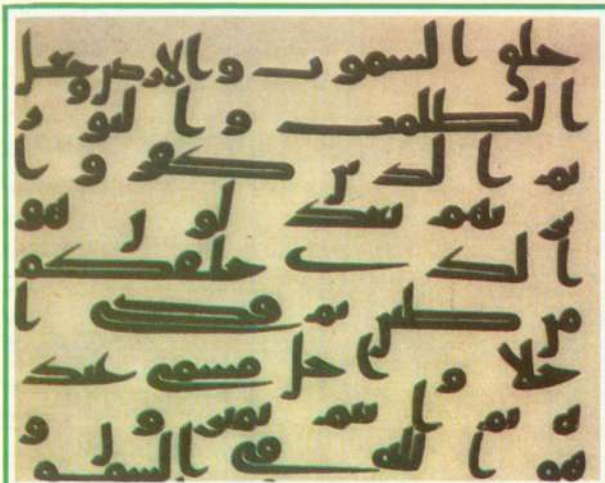 خلق السموت والارض وجعل
الظلمت والنور
ثم الذين كفروا
بربهم يعدلون هو
الذي خلقكم
من طين ثم قضى ا
جلا واجل مسمى عند
ه ثم انتم تمترون و
هو الله في السمو